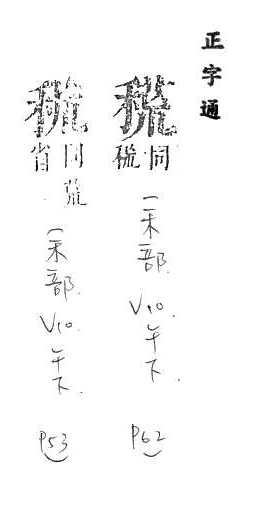 正字通
䅣
同
(禾部. V10. 午下. P62)
同
省
(禾部. V10. 午下. P53)